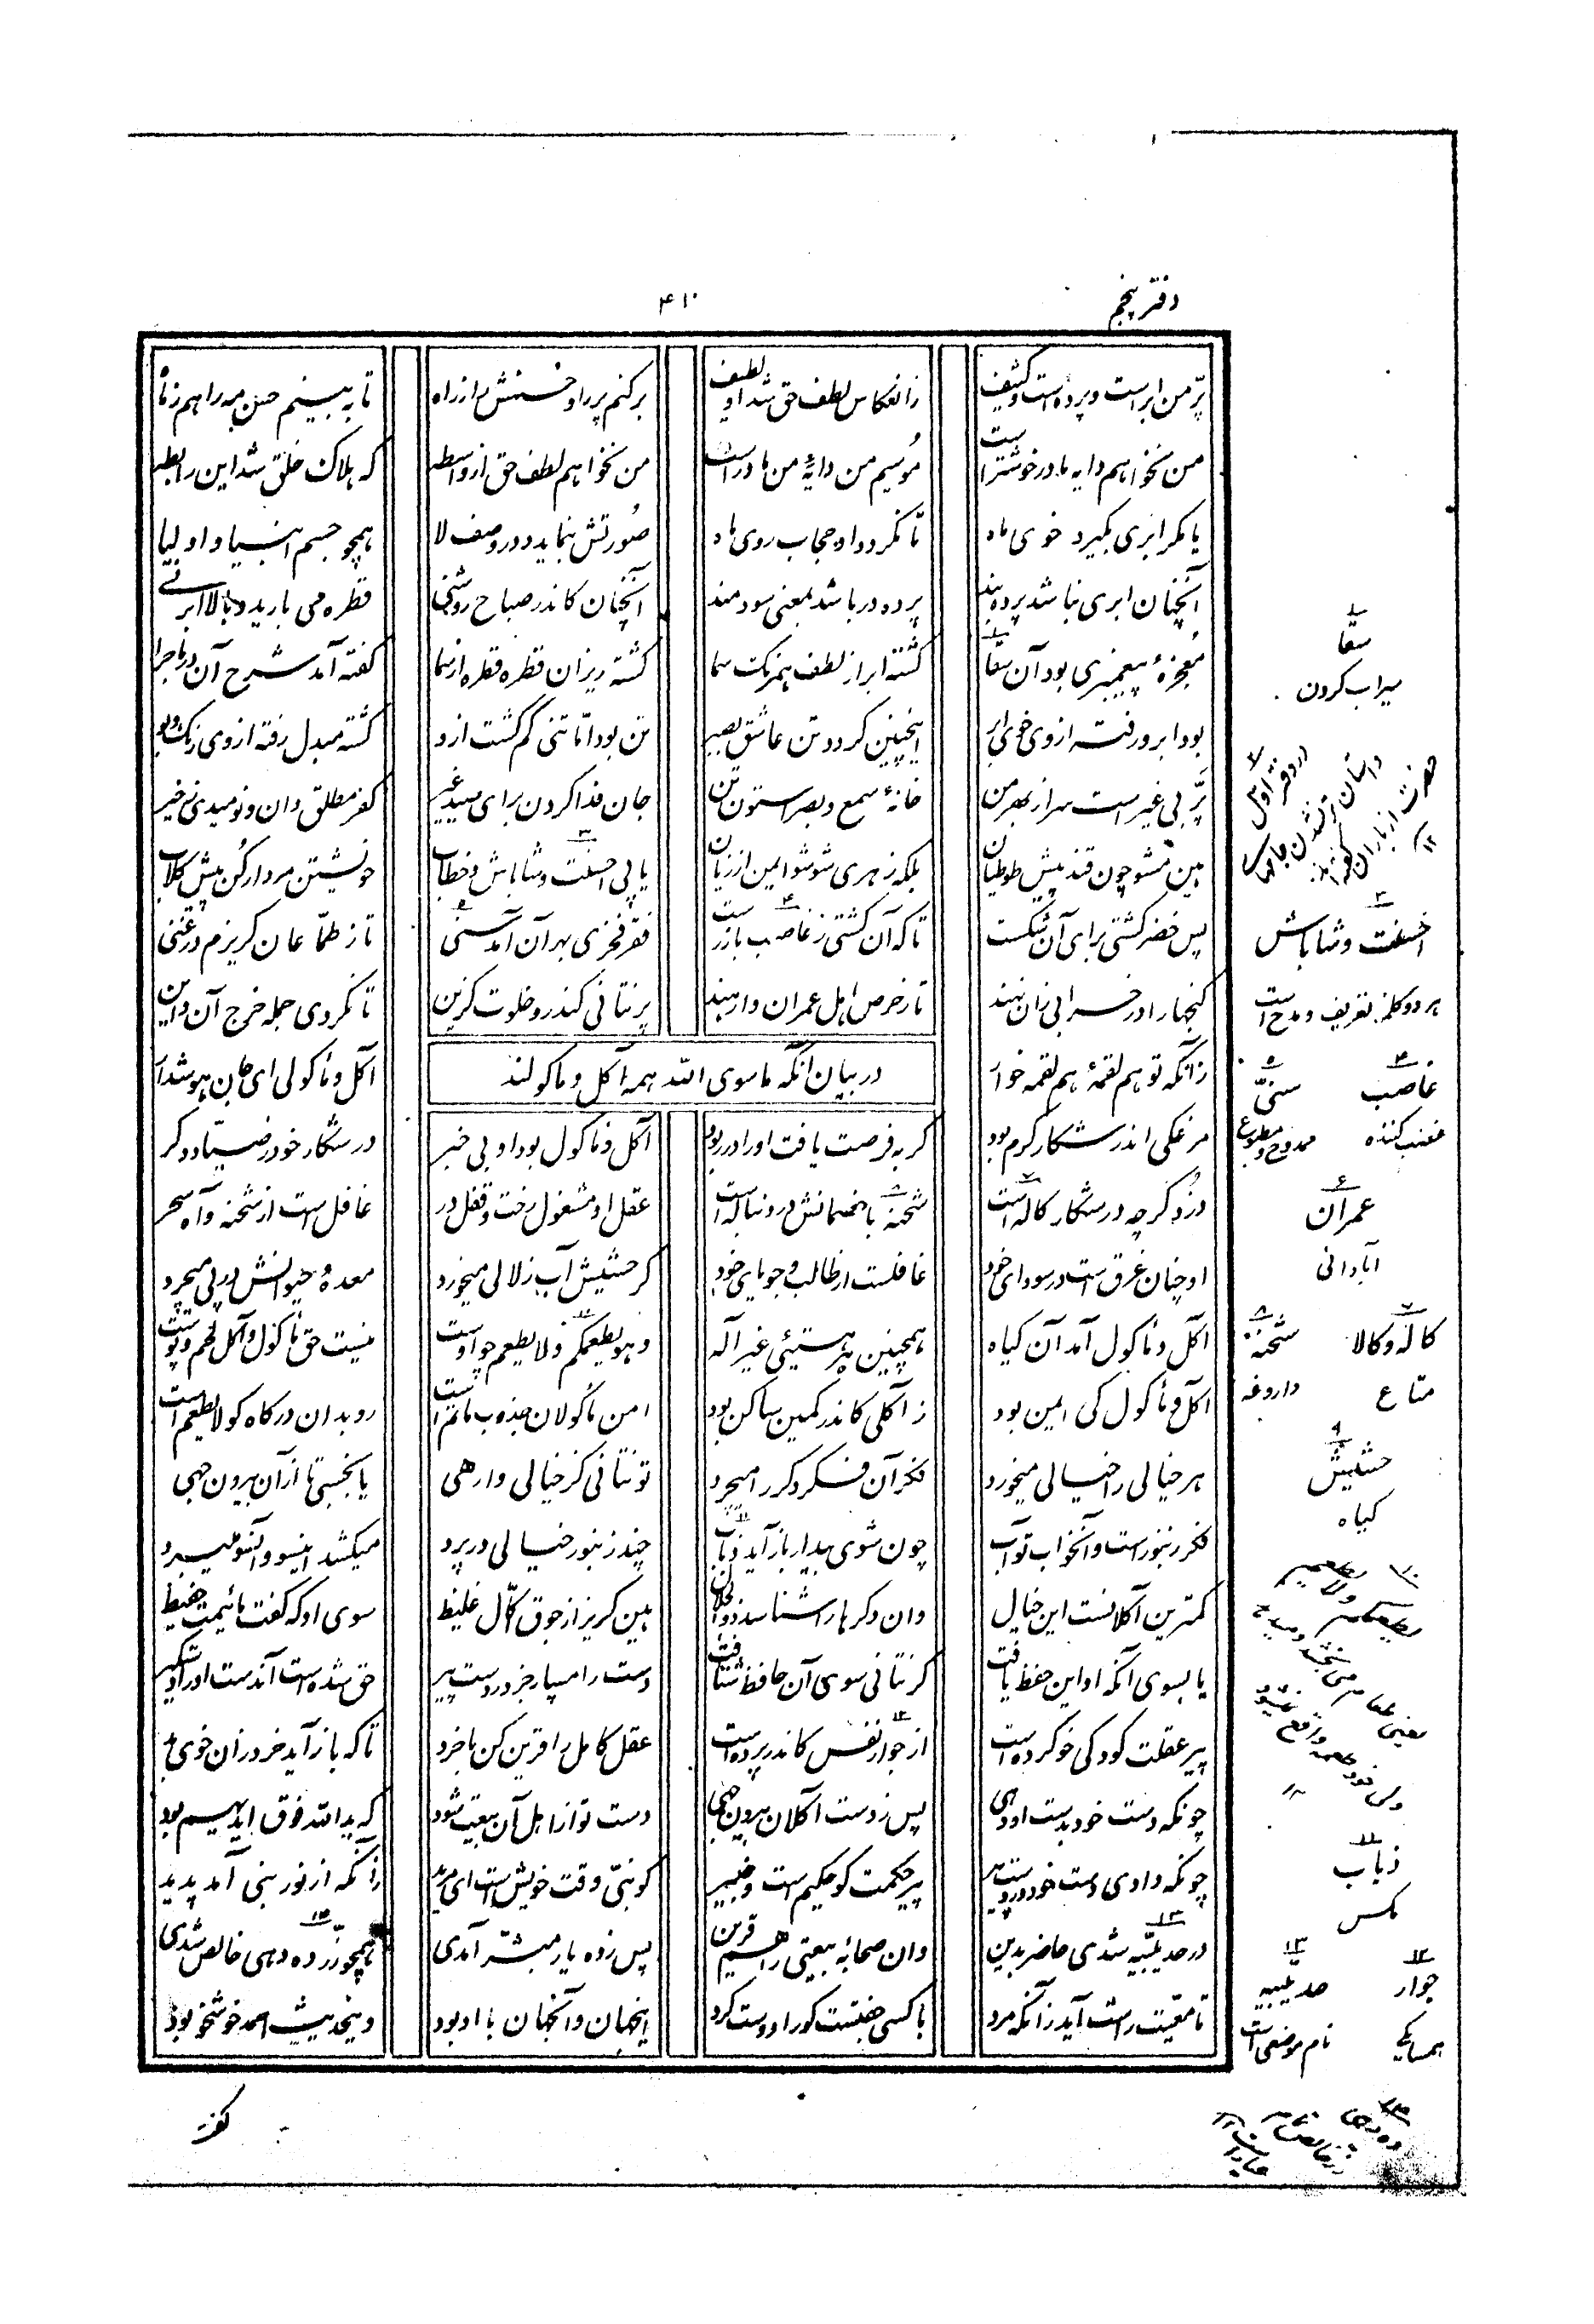 دفتر پنجم
۴۱۰
پرّ من ابر است و پرده است و کثیف
ز انعکاس لطف حق شد او لطیف
برکنم پر را و حسنش را ز راه
تا به بینم حسن مه را هم ز ماه
من نخواهم دایه مادر خوشتر است
موسیم من دایهٔ من مادر است
من نخواهم لطف حق از واسطه
که هلاک خلق شد این رابطه
یا مگر ابری بگیرد خوی ماه
تا نگردد او حجاب روی ماه
صورتش بنماید در وصف لا
همچو جسم انبیا و اولیا
آنچنان ابری نباشد پرده بند
پرده در باشد بمعنی سودمند
آنچنان کاندر صباح روشنی
قطره می بارید و بالا ابر نی
معجزهٔ پیغمبری بود آن سقا
گشته ابر از لطف همرنگ سما
گشته ریزان قطره قطره از سما
گفته آمد شرح آن در ماجرا
بود ابر و رفته از وی خوی ابر
اینچنین گردد تن عاشق بصبر
تن بود امّا تنی گم گشت ازو
گشته مبدل رفته از وی رنگ و بو
پرّ پی غیر است سر از بهر من
خانهٔ سمع و بصر استون تن
جان فدا کردن برای صید غیر
کفر مطلق دان و نومیدی ز خیر
هین مشو چون قند پیش طوطیان
بلکه زهری شو شو ایمن از زیان
یا پی احسنت و شاباش و خطاب
خویشتن مردار کن پیش کلاب
پس خضر کشتی برای آن شکست
تا که آن کشتی ز غاصب باز رست
فقر فخری بهر آن آمد سنی
تا ز طمّاعان گریزم در غنی
گنجها را در خرابی زان نهند
تا ز حرص اهل عمران وارهند
پر نتانی کند رو خلوت گزین
تا نگردی جمله خرج آن و این
زآنکه تو هم لقمهٔ هم لقمه خوار
آکل و ماکولی ای جان هوشدار
در بیان آنکه ماسوی الله همه آکل و ماکولند
مرغکی اندر شکار کرم بود
گربه فرصت یافت او را در ربود
آکل و ماکول بود او بی خبر
در شکار خود ز صیّاد دگر
دزد گرچه در شکار کاله است
شحنه با خصمانش در دنباله است
عقل او مشغول رخت و قفل در
غافل است از شحنه و آه سحر
او چنان غرق است در سودای خود
غافلست از طالب و جویای خود
گر حشیش آب زلالی میخورد
معدهٔ حیوانش در پی میچرد
آکل و ماکول آمد آن گیاه
همچنین هر هستیئی غیر آله
و هو یطعمکم و لا یطعم چو اوست
نیست حق ماکول و آکل لحم و پوست
آکل و ماکول کی ایمن بود
ز آکلی کاندر کمین ساکن بود
امن ماکولان جذوب ماتم است
رو بدان درگاه کو لا یطعم است
هر خیالی را خیالی میخورد
فکر آن فکر دگر را میچرد
تو نتانی کز خیالی وارهی
یا بخسپی تا از آن بیرون جهی
فکر زنبور است و آنخواب تو آب
چون شوی بیدار باز آید ذباب
چند زنبور خیالی در پرد
میکشد اینسو و آنسو میبرد
کمترین آکلانست این خیال
وان دگرها را شناسد ذو الجلال
هین گریز از جوق اکّال غلیظ
سوی او که گفت ما ئیمت حفیظ
یا بسوی آنکه او این حفظ یافت
گر نتانی سوی آن حافظ شتافت
دست را مسپار جز در دست پیر
حق شده است آندست او را دستگیر
پیر عقلت کودکی خو کرده است
از جوار نفس کاندر پرده است
عقل کامل را قرین کن با خرد
تا که باز آید خرد زان خوی بد
چونکه دست خود بدست او دهی
پس ز دست آکلان بیرون جهی
دست تو از اهل آن بیعت شود
که ید الله فوق ایدیهم بود
چونکه دادی دست خود در دست پیر
پیر حکمت کو حکیم است و خبیر
کو نبیّ وقت خویش است ای مرید
زآنکه از نور نبی آمد پدید
در حدیبیه شدی حاضر بدین
وان صحابهٔ بیعتی را هم قرین
پس ز ده یار مبشّر آمدی
همچو زرّ ده دهی خالص شدی
تا معیّت راست آید زآنکه مرد
با کسی جفتست کو را دوست کرد
اینجهان و آنجهان با او بود
وینحدیث احمد خوشخو بود
۱
سقا
سیراب کردن
۲
در دفتر اول
داستان تر نشدن جامهای
حضرت از باران
۱۲
۳
احسنت و شاباش
هر دو کلمه تعریف و مدح است
۴
غاصب
غصب کننده
۵
سنیّ
ممدوح و مطبوع
۶
عمران
آبادانی
۷
کاله و کالا
متاع
۸
شحنه
داروغه
۹
حشیش
گیاه
۱۰
یطعمکم
ولا یطعم
یعنی
۱۱
ذباب
مگس
۱۲
جوار
همسایگی
۱۳
حدیبیه
نام موضعی است
ده دهی
گفت